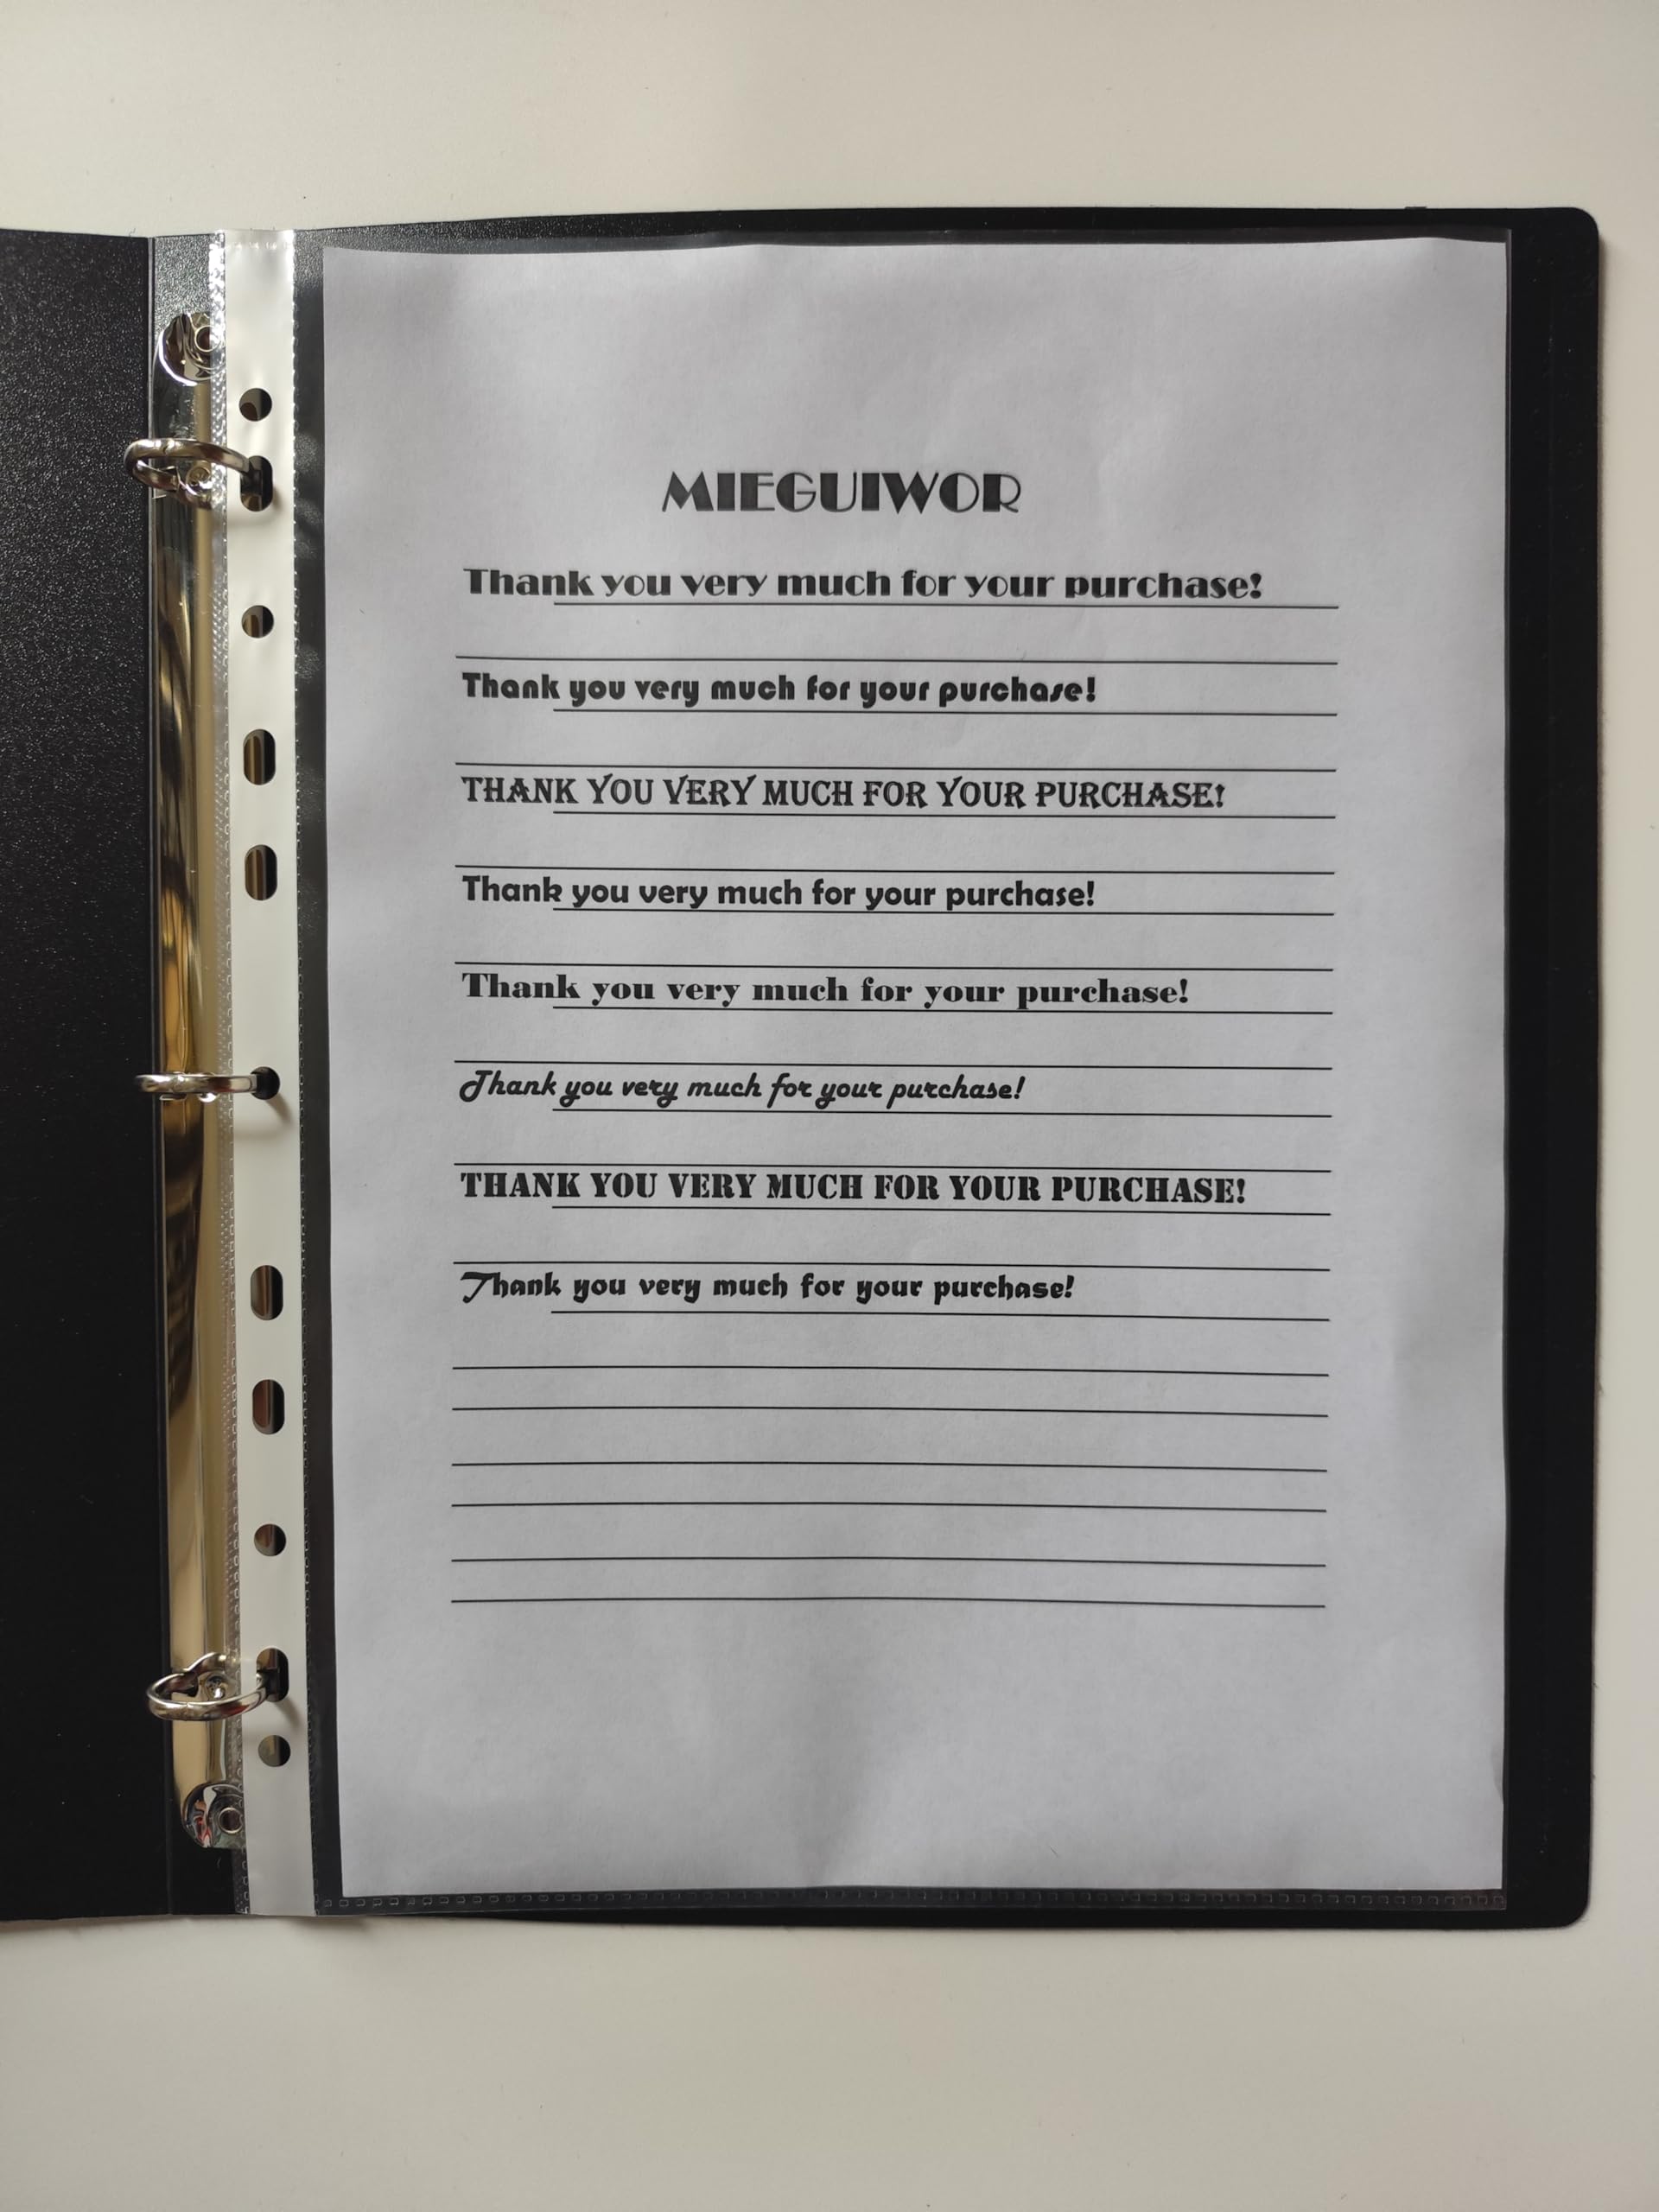 MIEGUIWOR
Thank you very much for your purchase!
Thank you very much for your purchase!
THANK YOU VERY MUCH FOR YOUR PURCHASE!
Thank you very much for your purchase!
Thank you very much for your purchase!
Thank you very much for your purchase!
THANK YOU VERY MUCH FOR YOUR PURCHASE!
Thank you very much for your purchase!